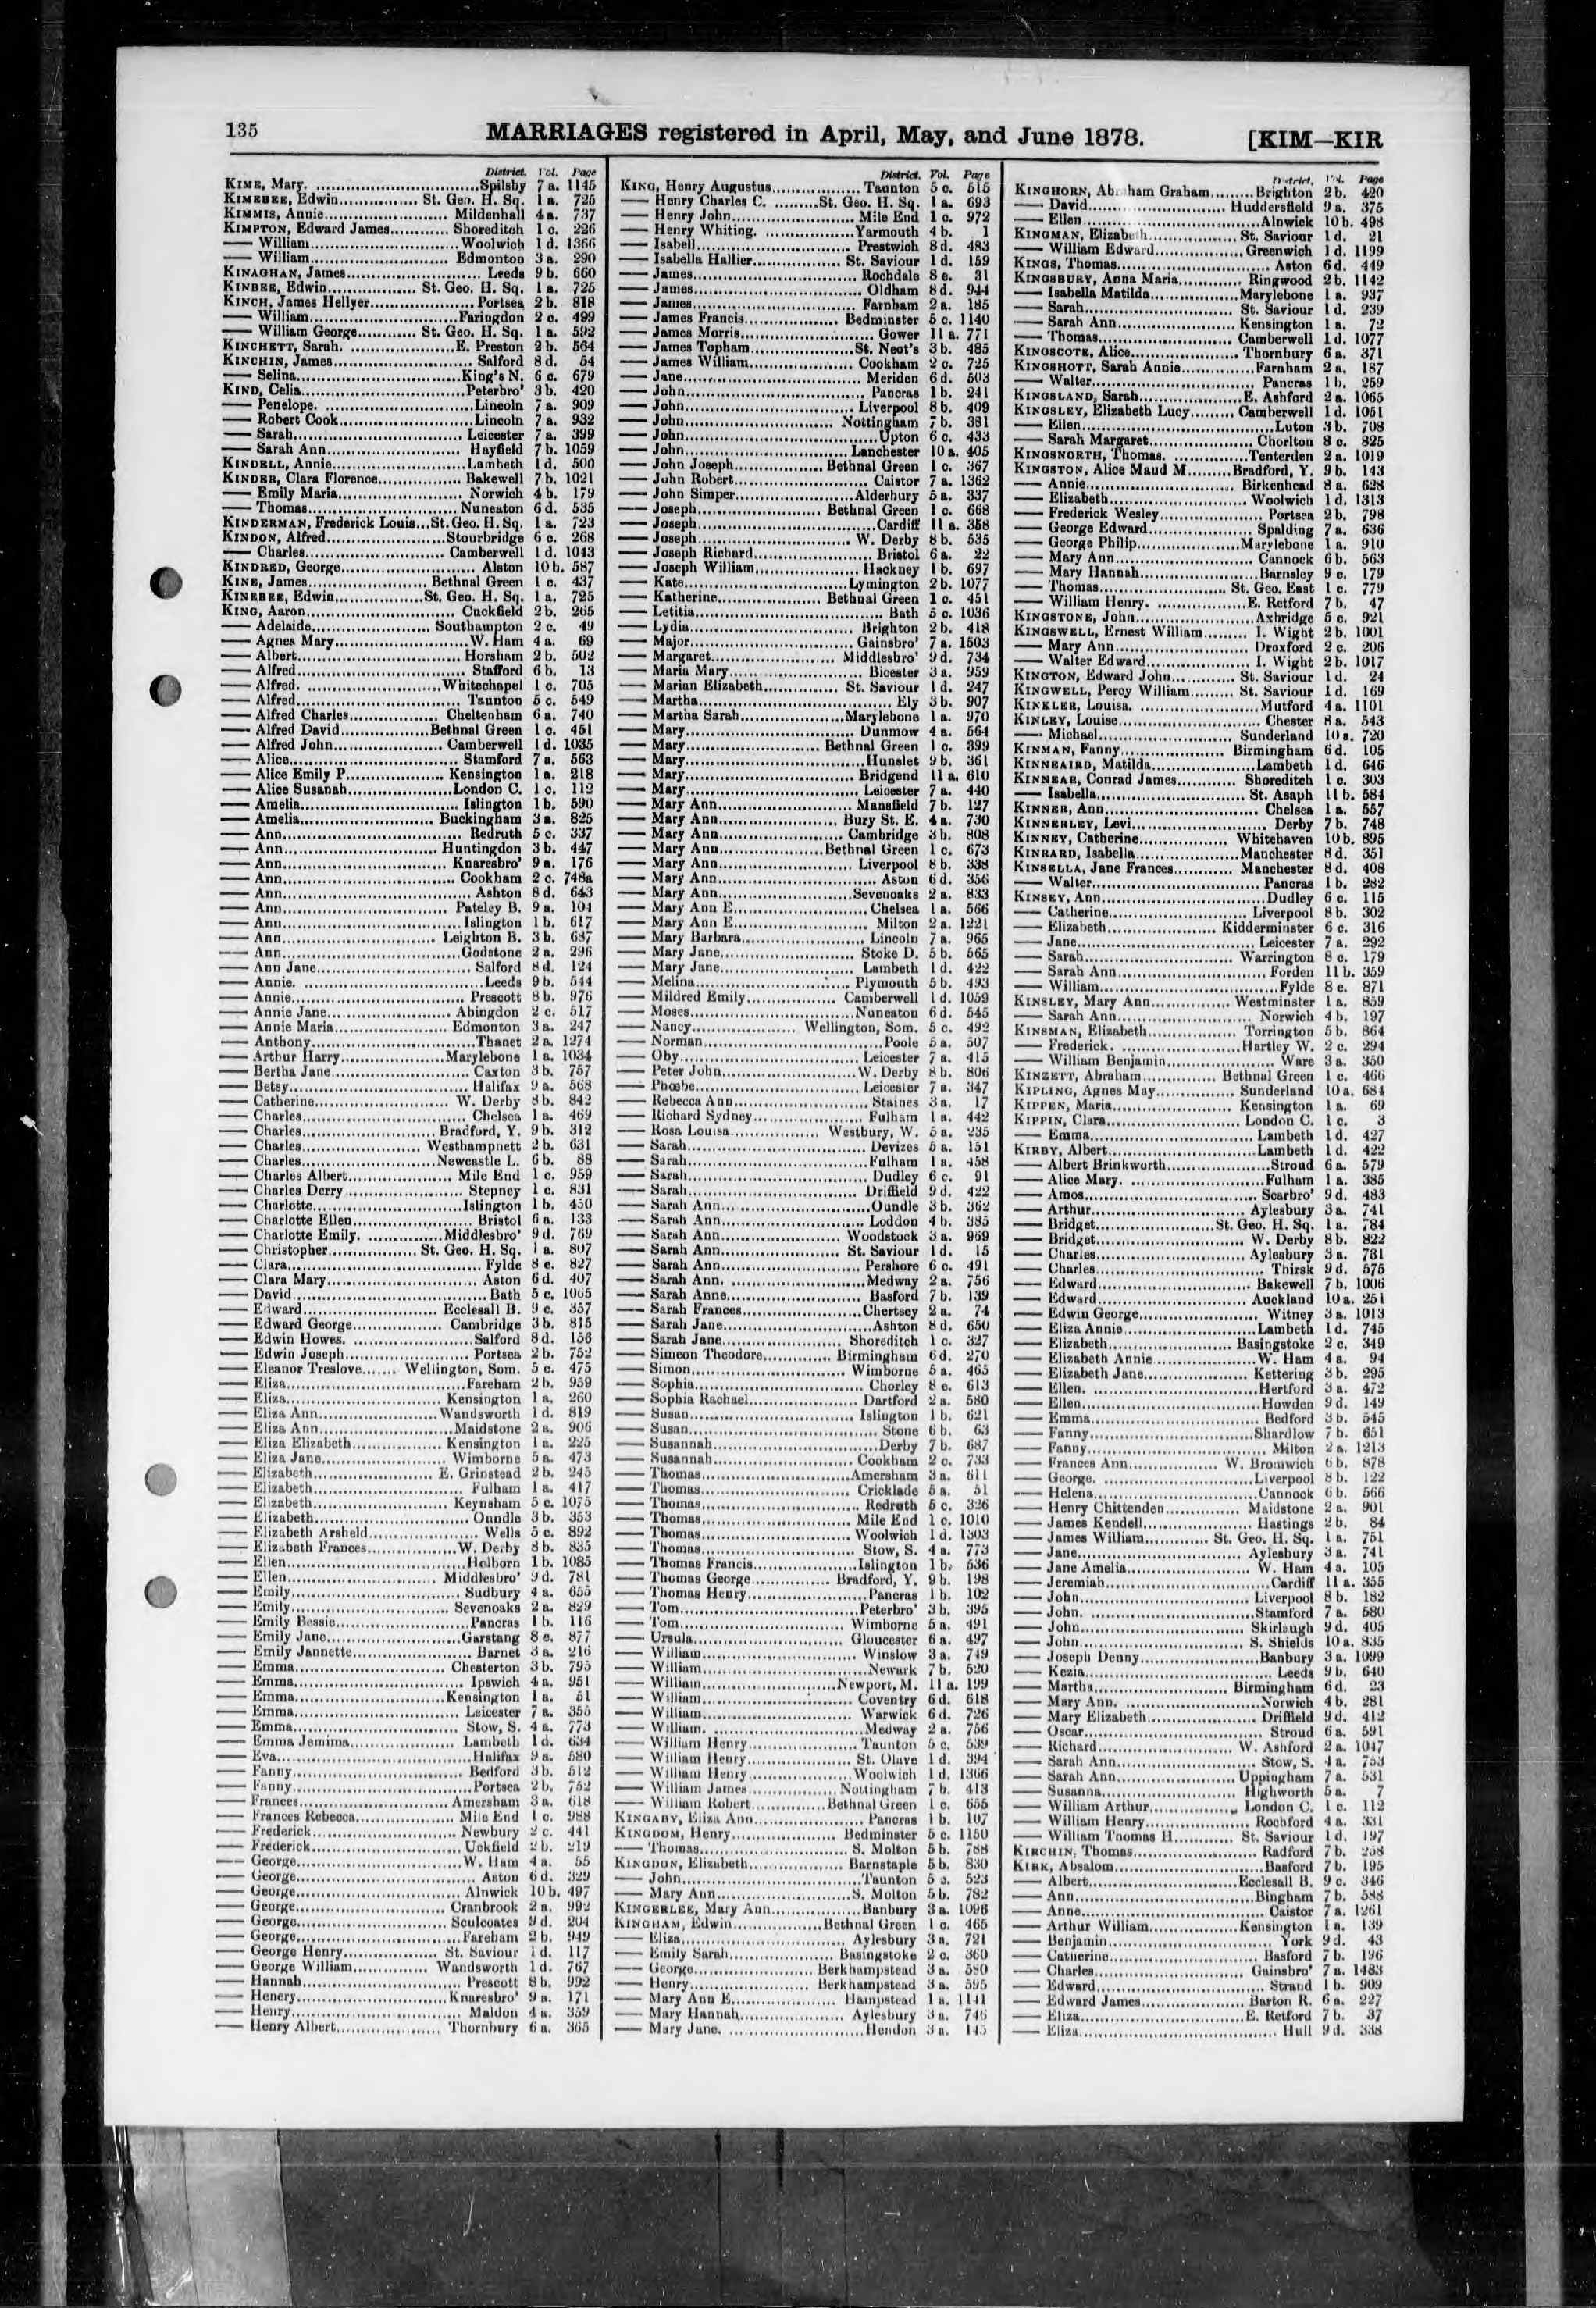 135
MARRIAGES registered in April, May, and June 1878.
[KIM—KIR
District. Vol. Page
KIME, Mary. ...Spilsby 7 a. 1145
KIMEBEE, Edwin...St. Geo. H. Sq. 1 a. 725
KIMMIS, Annie...Mildenhall 4 a. 737
KIMPTON, Edward James...Shoreditch 1 c. 226
—— William...Woolwich 1 d. 1366
—— William...Edmonton 3 a. 290
KINAGHAN, James...Leeds 9 b. 660
KINBEE, Edwin...St. Geo. H. Sq. 1 a. 725
KINCH, James Hellyer...Portsea 2 b. 818
—— William...Faringdon 2 c. 499
—— William George...St. Geo. H. Sq. 1 a. 592
KINCHETT, Sarah. ...E. Preston 2 b. 564
KINCHIN, James...Salford 8 d. 54
—— Selina...King's N. 6 c. 679
KIND, Celia...Peterbro' 3 b. 420
—— Penelope. ...Lincoln 7 a. 909
—— Robert Cook...Lincoln 7 a. 932
—— Sarah...Leicester 7 a. 399
—— Sarah Ann...Hayfield 7 b. 1059
KINDELL, Annie...Lambeth 1 d. 500
KINDER, Clara Florence...Bakewell 7 b. 1021
—— Emily Maria...Norwich 4 b. 179
—— Thomas...Nuneaton 6 d. 535
KINDERMAN, Frederick Louis...St. Geo. H. Sq. 1 a. 723
KINDON, Alfred...Stourbridge 6 c. 268
—— Charles...Camberwell 1 d. 1043
KINDRED, George...Alston 10 b. 587
KINE, James...Bethnal Green 1 c. 437
KINEBEE, Edwin...St. Geo. H. Sq. 1 a. 725
KING, Aaron...Cuckfield 2 b. 265
—— Adelaide...Southampton 2 c. 49
—— Agnes Mary...W. Ham 4 a. 69
—— Albert...Horsham 2 b. 502
—— Alfred...Stafford 6 b. 13
—— Alfred. ...Whitechapel 1 c. 705
—— Alfred...Taunton 5 c. 549
—— Alfred Charles...Cheltenham 6 a. 740
—— Alfred David...Bethnal Green 1 c. 451
—— Alfred John...Camberwell 1 d. 1035
—— Alice...Stamford 7 a. 563
—— Alice Emily P...Kensington 1 a. 218
—— Alice Susanah...London C. 1 c. 112
—— Amelia...Islington 1 b. 590
—— Amelia...Buckingham 3 a. 825
—— Ann...Redruth 5 c. 337
—— Ann...Huntingdon 3 b. 447
—— Ann...Knaresbro' 9 a. 176
—— Ann...Cookham 2 c. 748a
—— Ann...Ashton 8 d. 643
—— Ann...Pateley B. 9 a. 104
—— Ann...Islington 1 b. 617
—— Ann...Leighton B. 3 b. 687
—— Ann...Godstone 2 a. 296
—— Ann Jane...Salford 8 d. 124
—— Annie. ...Leeds 9 b. 544
—— Annie...Prescott 8 b. 976
—— Annie Jane...Abingdon 2 c. 517
—— Annie Maria...Edmonton 3 a. 247
—— Anthony...Thanet 2 a. 1274
—— Arthur Harry...Marylebone 1 a. 1034
—— Bertha Jane...Caxton 3 b. 757
—— Betsy...Halifax 9 a. 568
—— Catherine...W. Derby 8 b. 842
—— Charles...Chelsea 1 a. 469
—— Charles...Bradford, Y. 9 b. 312
—— Charles...Westhampnett 2 b. 631
—— Charles...Newcastle L. 6 b. 88
—— Charles Albert...Mile End 1 c. 959
—— Charles Derry...Stepney 1 c. 831
—— Charlotte...Islington 1 b. 450
—— Charlotte Ellen...Bristol 6 a. 133
—— Charlotte Emily. ...Middlesbro' 9 d. 769
—— Christopher...St. Geo. H. Sq. 1 a. 807
—— Clara...Fylde 8 e. 827
—— Clara Mary...Aston 6 d. 407
—— David...Bath 5 c. 1065
—— Edward...Ecclesall B. 9 c. 357
—— Edward George...Cambridge 3 b. 815
—— Edwin Howes. ...Salford 8 d. 156
—— Edwin Joseph...Portsea 2 b. 752
—— Eleanor Treslove...Wellington, Som. 5 c. 475
—— Eliza...Fareham 2 b. 959
—— Eliza...Kensington 1 a. 260
—— Eliza Ann...Wandsworth 1 d. 819
—— Eliza Ann...Maidstone 2 a. 906
—— Eliza Elizabeth...Kensington 1 a. 225
—— Eliza Jane...Wimborne 5 a. 473
—— Elizabeth...E. Grinstead 2 b. 245
—— Elizabeth...Fulham 1 a. 417
—— Elizabeth...Keynsham 5 c. 1075
—— Elizabeth...Oundle 3 b. 353
—— Elizabeth Arsheld...Wells 5 c. 892
—— Elizabeth Frances...W. Derby 8 b. 835
—— Ellen...Holborn 1 b. 1085
—— Ellen...Middlesbro' 9 d. 781
—— Emily...Sudbury 4 a. 655
—— Emily...Sevenoaks 2 a. 829
—— Emily Bessie...Pancras 1 b. 116
—— Emily Jane...Garstang 8 e. 877
—— Emily Jannette...Barnet 3 a. 216
—— Emma...Chesterton 3 b. 795
—— Emma...Ipswich 4 a. 951
—— Emma...Kensington 1 a. 51
—— Emma...Leicester 7 a. 355
—— Emma...Stow, S. 4 a. 773
—— Emma Jemima...Lambeth 1 d. 634
—— Eva...Halifax 9 a. 580
—— Fanny...Bedford 3 b. 512
—— Fanny...Portsea 2 b. 752
—— Frances...Amersham 3 a. 618
—— Frances Rebecca...Mile End 1 c. 988
—— Frederick...Newbury 2 c. 441
—— Frederick...Uckfield 2 b. 219
—— George...W. Ham 4 a. 55
—— George...Aston 6 d. 329
—— George...Alnwick 10 b. 497
—— George...Cranbrook 2 a. 992
—— George...Sculcoates 9 d. 204
—— George...Fareham 2 b. 949
—— George Henry...St. Saviour 1 d. 117
—— George William...Wandsworth 1 d. 767
—— Hannah...Prescott 8 b. 992
—— Henery...Knaresbro' 9 a. 171
—— Henry...Maldon 4 a. 359
—— Henry Albert...Thornbury 6 a. 365
District. Vol. Page
KING, Henry Augustus...Taunton 5 c. 515
—— Henry Charles C. ...St. Geo. H. Sq. 1 a. 693
—— Henry John...Mile End 1 c. 972
—— Henry Whiting. ...Yarmouth 4 b. 1
—— Isabell...Prestwich 8 d. 483
—— Isabella Hallier...St. Saviour 1 d. 159
—— James...Rochdale 8 e. 31
—— James...Oldham 8 d. 944
—— James...Farnham 2 a. 185
—— James Francis...Bedminster 5 c. 1140
—— James Morris...Gower 11 a. 771
—— James Topham...St. Neot's 3 b. 485
—— James William...Cookham 2 c. 725
—— Jane...Meriden 6 d. 503
—— John...Pancras 1 b. 241
—— John...Liverpool 8 b. 409
—— John...Nottingham 7 b. 381
—— John...Upton 6 c. 433
—— John...Lanchester 10 a. 405
—— John Joseph...Bethnal Green 1 c. 367
—— John Robert...Caistor 7 a. 1362
—— John Simper...Alderbury 5 a. 337
—— Joseph...Bethnal Green 1 c. 668
—— Joseph...Cardiff 11 a. 358
—— Joseph...W. Derby 8 b. 535
—— Joseph Richard...Bristol 6 a. 22
—— Joseph William...Hackney 1 b. 697
—— Kate...Lymington 2 b. 1077
—— Katherine...Bethnal Green 1 c. 451
—— Letitia...Bath 5 c. 1036
—— Lydia...Brighton 2 b. 418
—— Major...Gainsbro' 7 a. 1503
—— Margaret...Middlesbro' 9 d. 734
—— Maria Mary...Bicester 3 a. 959
—— Marian Elizabeth...St. Saviour 1 d. 247
—— Martha...Ely 3 b. 907
—— Martha Sarah...Marylebone 1 a. 970
—— Mary...Dunmow 4 a. 564
—— Mary...Bethnal Green 1 c. 399
—— Mary...Hunslet 9 b. 361
—— Mary...Bridgend 11 a. 610
—— Mary...Leicester 7 a. 440
—— Mary Ann...Mansfield 7 b. 127
—— Mary Ann...Bury St. E. 4 a. 730
—— Mary Ann...Cambridge 3 b. 808
—— Mary Ann...Bethnal Green 1 c. 673
—— Mary Ann...Liverpool 8 b. 338
—— Mary Ann...Aston 6 d. 356
—— Mary Ann...Sevenoaks 2 a. 833
—— Mary Ann E...Chelsea 1 a. 566
—— Mary Ann E...Milton 2 a. 1221
—— Mary Barbara...Lincoln 7 a. 965
—— Mary Jane...Stoke D. 5 b. 565
—— Mary Jane...Lambeth 1 d. 422
—— Melina...Plymouth 5 b. 493
—— Mildred Emily...Camberwell 1 d. 1059
—— Moses...Nuneaton 6 d. 545
—— Nancy...Wellington, Som. 5 c. 492
—— Norman...Poole 5 a. 507
—— Oby...Leicester 7 a. 415
—— Peter John...W. Derby 8 b. 806
—— Phœbe...Leicester 7 a. 347
—— Rebecca Ann...Staines 3 a. 17
—— Richard Sydney...Fulham 1 a. 442
—— Rosa Louisa...Westbury, W. 5 a. 235
—— Sarah...Devizes 5 a. 151
—— Sarah...Fulham 1 a. 458
—— Sarah...Dudley 6 c. 91
—— Sarah...Driffield 9 d. 422
—— Sarah Ann...Oundle 3 b. 362
—— Sarah Ann...Loddon 4 b. 385
—— Sarah Ann...Woodstock 3 a. 969
—— Sarah Ann...St. Saviour 1 d. 15
—— Sarah Ann...Pershore 6 c. 491
—— Sarah Ann. ...Medway 2 a. 756
—— Sarah Anne...Basford 7 b. 139
—— Sarah Frances...Chertsey 2 a. 74
—— Sarah Jane...Ashton 8 d. 650
—— Sarah Jane...Shoreditch 1 c. 327
—— Simeon Theodore...Birmingham 6 d. 270
—— Simon...Wimborne 5 a. 465
—— Sophia...Chorley 8 e. 613
—— Sophia Rachael...Dartford 2 a. 580
—— Susan...Islington 1 b. 621
—— Susan...Stone 6 b. 63
—— Susannah...Derby 7 b. 687
—— Susannah...Cookham 2 c. 733
—— Thomas...Amersham 3 a. 611
—— Thomas...Cricklade 5 a. 51
—— Thomas...Redruth 5 c. 326
—— Thomas...Mile End 1 c. 1010
—— Thomas...Woolwich 1 d. 1303
—— Thomas...Stow, S. 4 a. 773
—— Thomas Francis...Islington 1 b. 536
—— Thomas George...Bradford, Y. 9 b. 198
—— Thomas Henry...Pancras 1 b. 102
—— Tom...Peterbro' 3 b. 395
—— Tom...Wimborne 5 a. 491
—— Ursula...Gloucester 6 a. 497
—— William...Winslow 3 a. 749
—— William...Newark 7 b. 520
—— William...Newport, M. 11 a. 199
—— William...Coventry 6 d. 618
—— William...Warwick 6 d. 726
—— William. ...Medway 2 a. 756
—— William Henry...Taunton 5 c. 539
—— William Henry...St. Olave 1 d. 394
—— William Henry...Woolwich 1 d. 1366
—— William James...Nottingham 7 b. 413
—— William Robert...Bethnal Green 1 c. 655
KINGABY, Eliza Ann...Pancras 1 b. 107
KINGDOM, Henry...Bedminster 5 c. 1150
—— Thomas...S. Molton 5 b. 788
KINGDON, Elizabeth...Barnstaple 5 b. 830
—— John...Taunton 5 c. 523
—— Mary Ann...S. Molton 5 b. 782
KINGERLEE, Mary Ann...Banbury 3 a. 1096
KINGHAM, Edwin...Bethnal Green 1 c. 465
—— Eliza...Aylesbury 3 a. 721
—— Emily Sarah...Basingstoke 2 c. 360
—— George...Berkhampstead 3 a. 590
—— Henry...Berkhampstead 3 a. 595
—— Mary Ann E...Hampstead 1 a. 1141
—— Mary Hannah...Aylesbury 3 a. 746
—— Mary Jane. ...Hendon 3 a. 145
District. Vol. Page
KINGHORN, Abraham Graham...Brighton 2 b. 420
—— David...Huddersfield 9 a. 375
—— Ellen...Alnwick 10 b. 498
KINGMAN, Elizabeth...St. Saviour 1 d. 21
—— William Edward...Greenwich 1 d. 1199
KINGS, Thomas...Aston 6 d. 449
KINGSBURY, Anna Maria...Ringwood 2 b. 1142
—— Isabella Matilda...Marylebone 1 a. 937
—— Sarah...St. Saviour 1 d. 239
—— Sarah Ann...Kensington 1 a. 72
—— Thomas...Camberwell 1 d. 1077
KINGSCOTE, Alice...Thornbury 6 a. 371
KINGSHOTT, Sarah Annie...Farnham 2 a. 187
—— Walter...Pancras 1 b. 259
KINGSLAND, Sarah...E. Ashford 2 a. 1065
KINGSLEY, Elizabeth Lucy...Camberwell 1 d. 1051
—— Ellen...Luton 3 b. 708
—— Sarah Margaret...Chorlton 8 c. 825
KINGSNORTH, Thomas. ...Tenterden 2 a. 1019
KINGSTON, Alice Maud M...Bradford, Y. 9 b. 143
—— Annie...Birkenhead 8 a. 628
—— Elizabeth...Woolwich 1 d. 1313
—— Frederick Wesley...Portsea 2 b. 798
—— George Edward...Spalding 7 a. 636
—— George Philip...Marylebone 1 a. 910
—— Mary Ann...Cannock 6 b. 563
—— Mary Hannah...Barnsley 9 c. 179
—— Thomas...St. Geo. East 1 c. 779
—— William Henry. ...E. Retford 7 b. 47
KINGSTONE, John...Axbridge 5 c. 921
KINGSWELL, Ernest William...I. Wight 2 b. 1001
—— Mary Ann...Droxford 2 c. 206
—— Walter Edward...I. Wight 2 b. 1017
KINGTON, Edward John...St. Saviour 1 d. 24
KINGWELL, Percy William...St. Saviour 1 d. 169
KINKLER, Louisa. ...Mutford 4 a. 1101
KINLEY, Louise...Chester 8 a. 543
—— Michael...Sunderland 10 a. 720
KINMAN, Fanny...Birmingham 6 d. 105
KINNEAIRD, Matilda...Lambeth 1 d. 646
KINNEAR, Conrad James...Shoreditch 1 c. 303
—— Isabella...St. Asaph 11 b. 584
KINNER, Ann...Chelsea 1 a. 557
KINNERLEY, Levi...Derby 7 b. 748
KINNEY, Catherine...Whitehaven 10 b. 895
KINRARD, Isabella...Manchester 8 d. 351
KINSELLA, Jane Frances...Manchester 8 d. 408
—— Walter...Pancras 1 b. 282
KINSEY, Ann...Dudley 6 c. 115
—— Catherine...Liverpool 8 b. 302
—— Elizabeth...Kidderminster 6 c. 316
—— Jane...Leicester 7 a. 292
—— Sarah...Warrington 8 c. 179
—— Sarah Ann...Forden 11 b. 359
—— William...Fylde 8 e. 871
KINSLEY, Mary Ann...Westminster 1 a. 859
—— Sarah Ann...Norwich 4 b. 197
KINSMAN, Elizabeth...Torrington 5 b. 864
—— Frederick. ...Hartley W. 2 c. 294
—— William Benjamin...Ware 3 a. 350
KINZETT, Abraham...Bethnal Green 1 c. 466
KIPLING, Agnes May...Sunderland 10 a. 684
KIPPEN, Maria...Kensington 1 a. 69
KIPPIN, Clara...London C. 1 c. 3
—— Emma...Lambeth 1 d. 427
KIRBY, Albert...Lambeth 1 d. 422
—— Albert Brinkworth...Stroud 6 a. 579
—— Alice Mary. ...Fulham 1 a. 385
—— Amos...Scarbro' 9 d. 483
—— Arthur...Aylesbury 3 a. 741
—— Bridget...St. Geo. H. Sq. 1 a. 784
—— Bridget...W. Derby 8 b. 822
—— Charles...Aylesbury 3 a. 781
—— Charles...Thirsk 9 d. 575
—— Edward...Bakewell 7 b. 1006
—— Edward...Auckland 10 a. 251
—— Edwin George...Witney 3 a. 1013
—— Eliza Annie...Lambeth 1 d. 745
—— Elizabeth...Basingstoke 2 c. 349
—— Elizabeth Annie...W. Ham 4 a. 94
—— Elizabeth Jane...Kettering 3 b. 295
—— Ellen. ...Hertford 3 a. 472
—— Ellen...Howden 9 d. 149
—— Emma...Bedford 3 b. 545
—— Fanny...Shardlow 7 b. 651
—— Fanny...Milton 2 a. 1213
—— Frances Ann...W. Bromwich 6 b. 878
—— George. ...Liverpool 8 b. 122
—— Helena...Cannock 6 b. 566
—— Henry Chittenden...Maidstone 2 a. 901
—— James Kendell...Hastings 2 b. 84
—— James William...St. Geo. H. Sq. 1 a. 751
—— Jane...Aylesbury 3 a. 741
—— Jane Amelia...W. Ham 4 a. 105
—— Jeremiah...Cardiff 11 a. 355
—— John...Liverpool 8 b. 182
—— John. ...Stamford 7 a. 580
—— John...Skirlaugh 9 d. 405
—— John...S. Shields 10 a. 835
—— Joseph Denny...Banbury 3 a. 1099
—— Kezia...Leeds 9 b. 640
—— Martha...Birmingham 6 d. 23
—— Mary Ann. ...Norwich 4 b. 281
—— Mary Elizabeth...Driffield 9 d. 412
—— Oscar...Stroud 6 a. 591
—— Richard...W. Ashford 2 a. 1047
—— Sarah Ann...Stow, S. 4 a. 753
—— Sarah Ann...Uppingham 7 a. 531
—— Susanna...Highworth 5 a. 7
—— William Arthur...London C. 1 c. 112
—— William Henry...Rochford 4 a. 331
—— William Thomas H...St. Saviour 1 d. 197
KIRCHIN, Thomas...Radford 7 b. 258
KIRK, Absalom...Basford 7 b. 195
—— Albert...Ecclesall B. 9 c. 346
—— Ann...Bingham 7 b. 588
—— Anne...Caistor 7 a. 1261
—— Arthur William...Kensington 1 a. 139
—— Benjamin...York 9 d. 43
—— Catherine...Basford 7 b. 196
—— Charles...Gainsbro' 7 a. 1483
—— Edward...Strand 1 b. 909
—— Edward James...Barton R. 6 a. 227
—— Eliza...E. Retford 7 b. 37
—— Eliza...Hull 9 d. 338